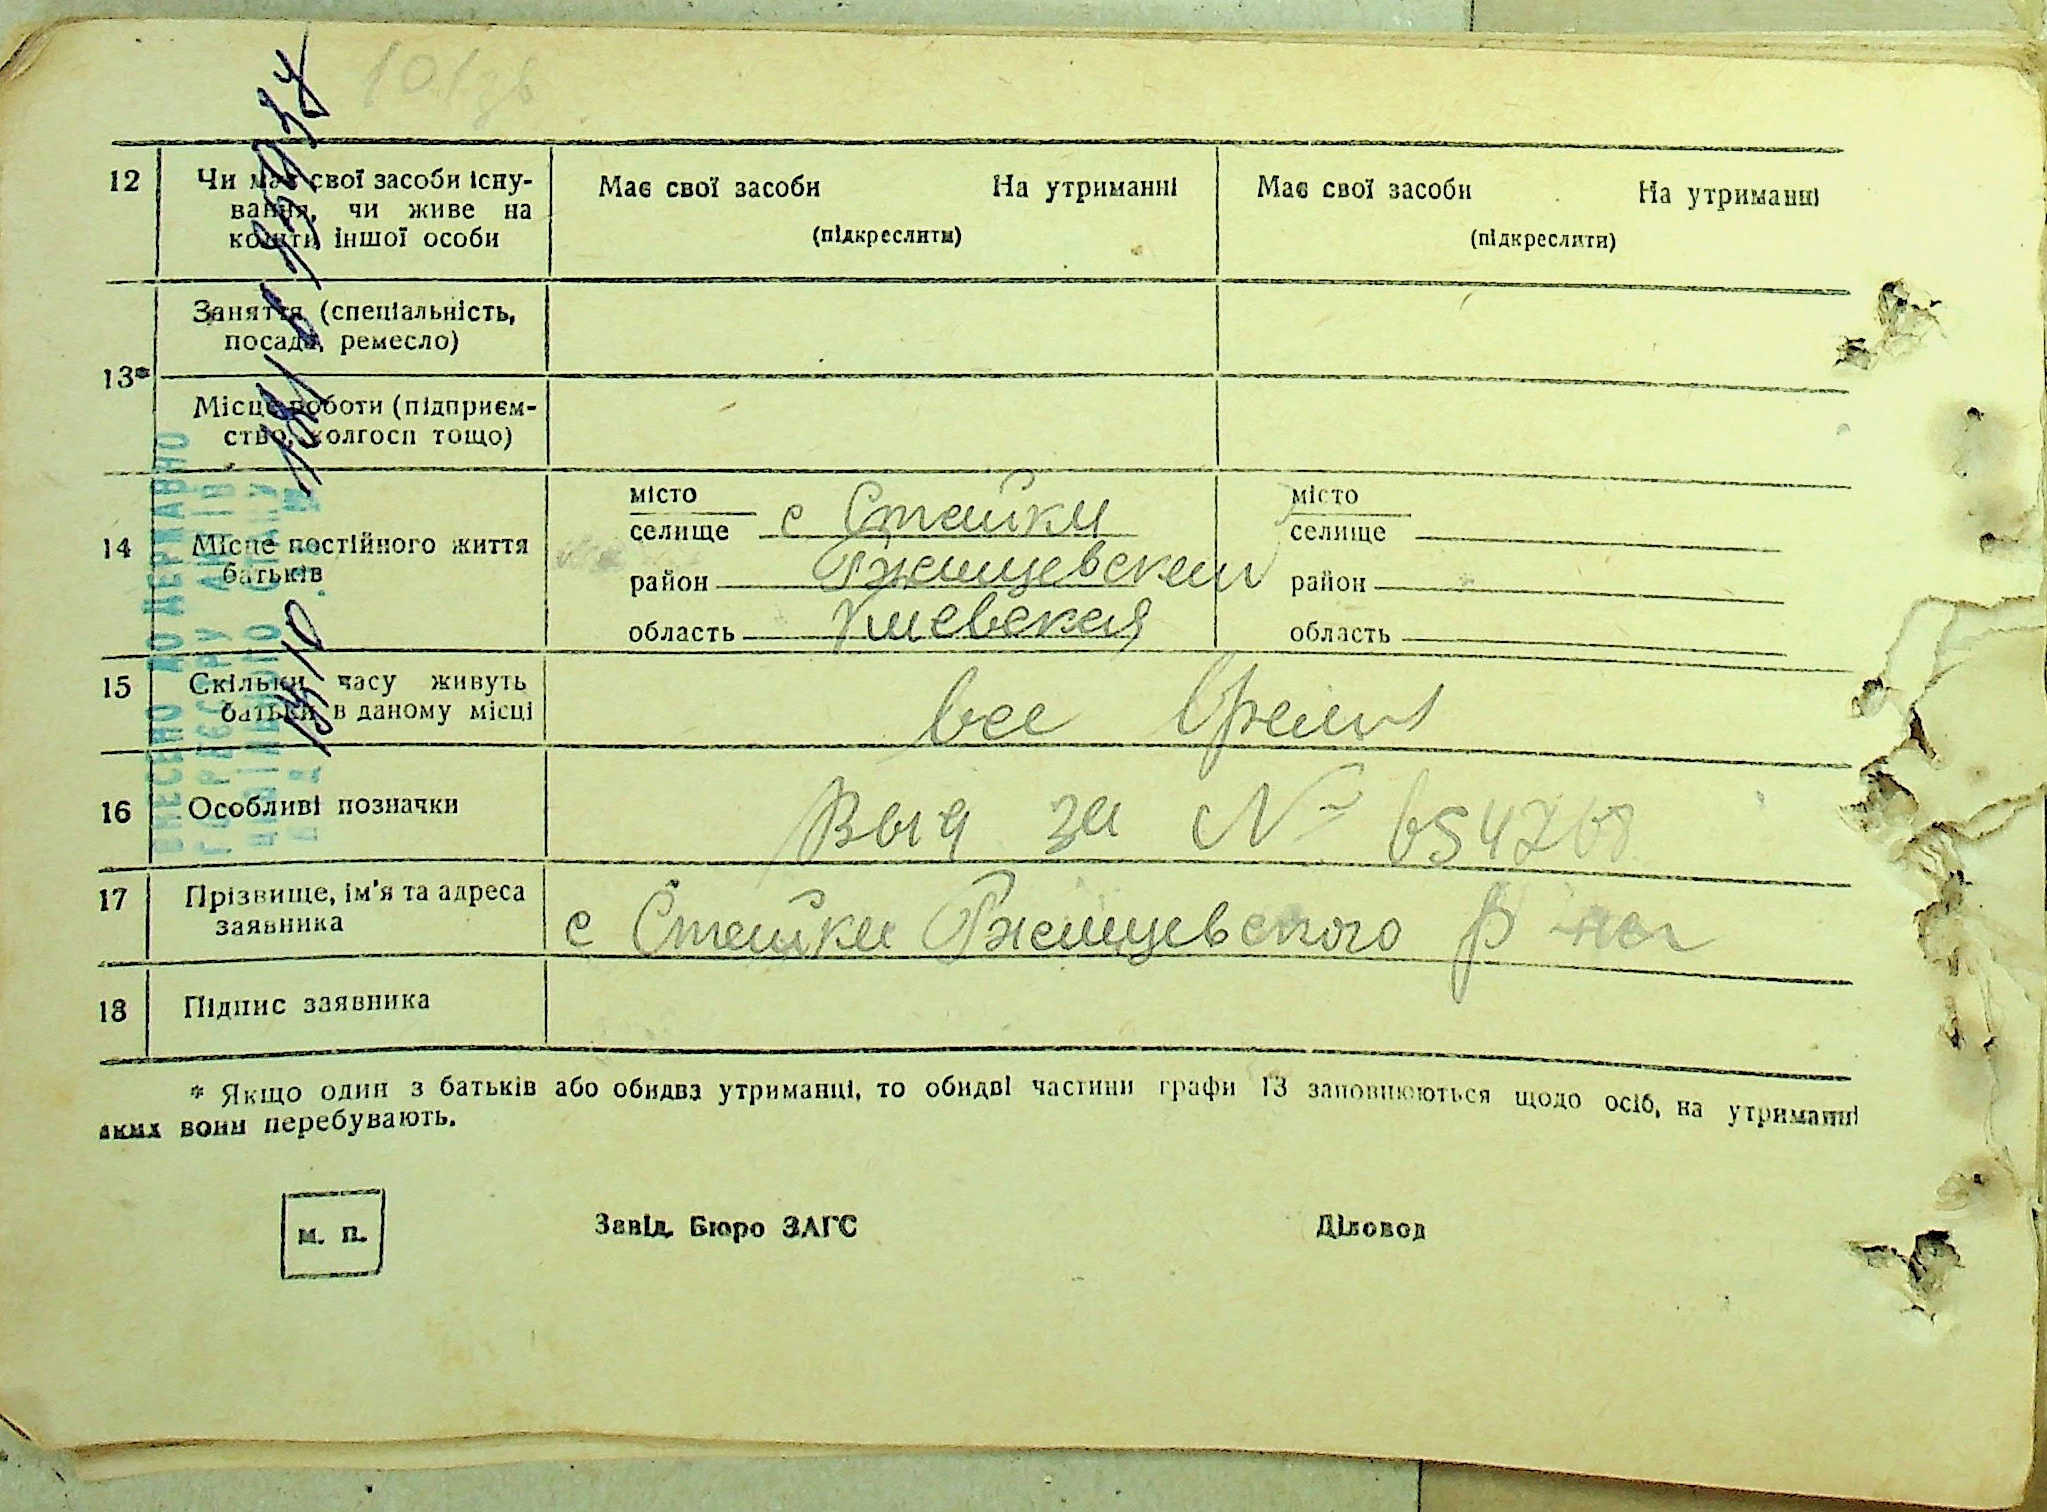 101 зв
12
Чи має свої засоби існу-
вання, чи живе на
кошти іншої особи
Має свої засоби На утриманні
(підкреслити)
Має свої засоби На утриманні
(підкреслити)
13*
Заняття (спеціальність,
посада, ремесло)
Місце роботи (підприєм-
ство, колгосп тощо)
14
Місце постійного життя
батьків
місто
селище с Стайки
район Ржищевский
область Киевская
місто
селище
район
область
15
Скільки часу живуть
батьки в даному місці
все время
16
Особливі позначки
Выд за №
17
Прізвище, ім'я та адреса
заявника
с Стайки Ржищевского р-на
18
Підпис заявника
* Якщо один з батьків або обидва утриманці, то обидві частини графи 13 заповнюються щодо осіб, на утриманні
яких вони перебувають.
м. п.
Завід. Бюро ЗАГС
Діловод
ВНЕСЕНО ДО ДЕРЖАВНО
ГО РЕЄСТРУ АКТІВ
ЦИВІЛЬНОГО СТАНУ